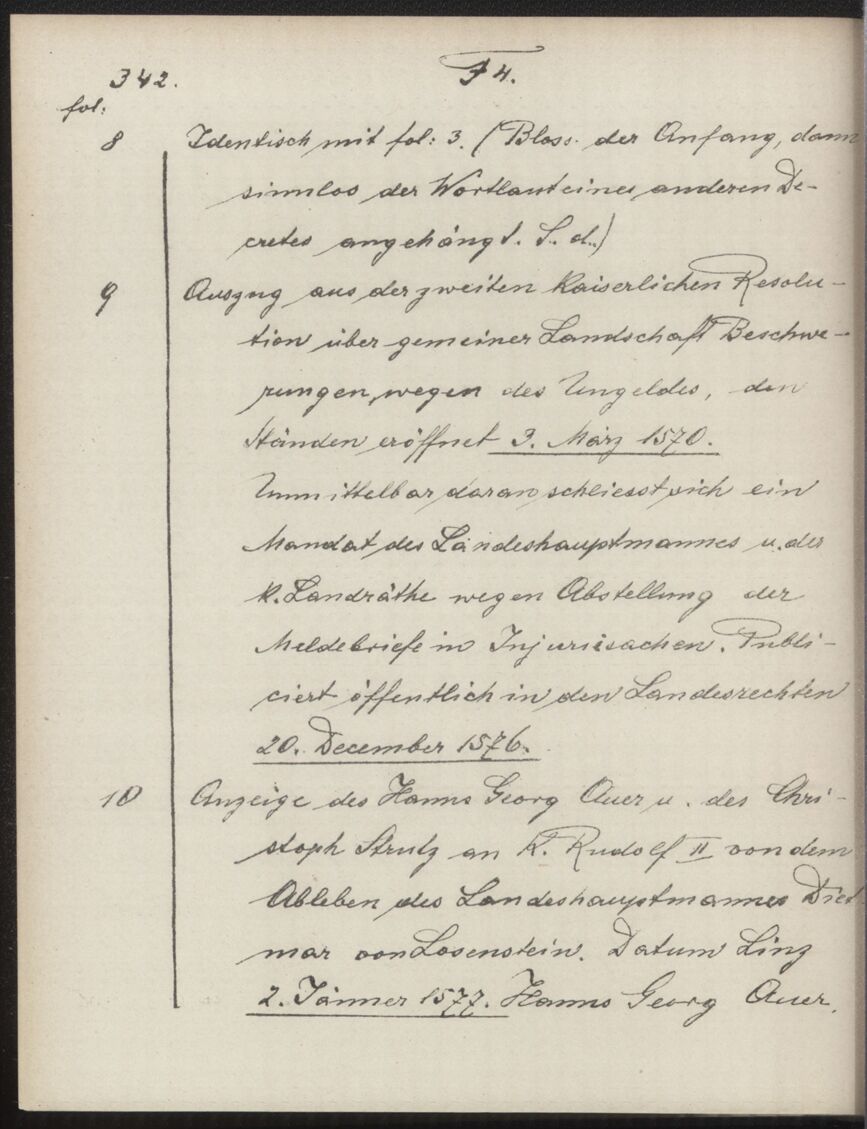 342. F4.
fol:
8 Identisch mit fol: 3. (Bloss der Anfang, dann
sinnlos der Wortlaut eines anderen De-
cretes angehängt. S. d.)
9 Auszug aus der zweiten kaiserlichen Resolu-
tion über gemeiner Landschaft Beschwe-
rungen, wegen des Ungeldes, den
Ständen eröffnet 3. März 1570.
Unmittelbar daran schliesst sich ein
Mandat des Landeshauptmannes u. der
k. Landräthe wegen Abstellung der
Meldebriefe in Injuriesachen. Publi-
ciert öffentlich in den Landesrechten
20. December 1576.
10 Anzeige des Hanns Georg Auer u. des Chri-
stoph Strutz an K. Rudolf II von dem
Ableben des Landeshauptmannes Diet-
mar von Losenstein. Datum Linz
2. Jänner 1577. Hanns Georg Auer.